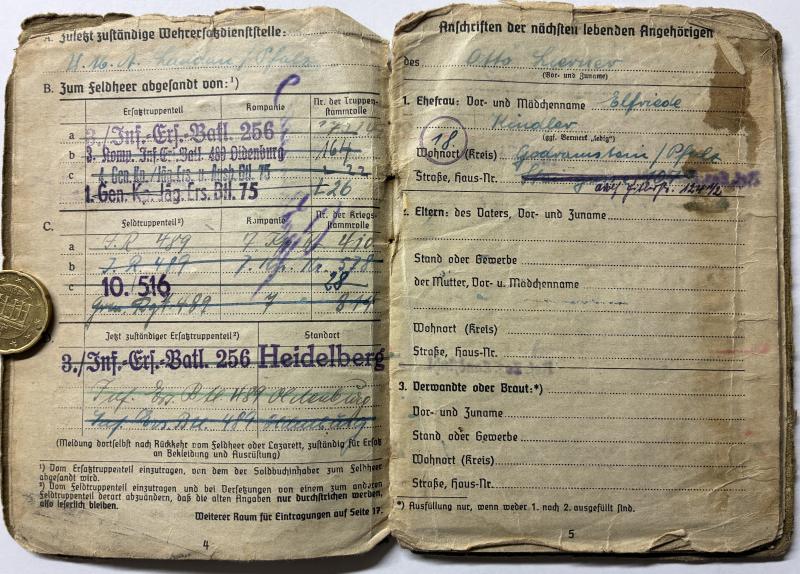 A. Zuletzt zuständige Wehrersatzdienststelle:
W. M. A. Landau / Pfalz
B. Zum Feldheer abgesandt von:¹)
Ersatztruppenteil Kompanie Nr. der Truppenstammrolle
a 3./Inf.-Ers.-Batl. 256
b 3. Komp. Inf. Ers. Batl. 489 Oldenburg 164
c 4. Gen. Kp./Jäg. Ers. u. Ausb. Btl. 75 22
1. Gen. Kp. Jäg. Ers. Btl. 75 26
C. Feldtruppenteil²) Kompanie Nr. der Kriegsstammrolle
a J. R. 489 7. 410
b J. R. 489 7. Kp. Nr. 578
c 10./516 28
Gren. Rgt. 489 7
D. Jetzt zuständiger Ersatztruppenteil²) Standort
3./Inf.-Ers.-Batl. 256 Heidelberg
Inf. Ers. Btl. 489 Oldenburg
Inf. Ers. Btl. 489 Hamburg
(Meldung dortselbst nach Rückkehr vom Feldheer oder Lazarett, zuständig für Ersatz
an Bekleidung und Ausrüstung)
¹) Vom Ersatztruppenteil einzutragen, von dem der Soldbuchinhaber zum Feldheer
abgesandt wird.
²) Vom Feldtruppenteil einzutragen und bei Versetzungen von einem zum anderen
Feldtruppenteil derart abzuändern, daß die alten Angaben nur durchstrichen werden,
also leserlich bleiben.
Weiterer Raum für Eintragungen auf Seite 17.
4
Anschriften der nächsten lebenden Angehörigen
des Otto
(Vor- und Zuname)
1. Ehefrau: Vor- und Mädchenname Elfriede
Kindler
(ggf. Vermerk „ledig")
18
Wohnort (Kreis) Godramstein / Pfalz
Straße, Haus-Nr.
2. Eltern: des Vaters, Vor- und Zuname
Stand oder Gewerbe
der Mutter, Vor- u. Mädchenname
Wohnort (Kreis)
Straße, Haus-Nr.
3. Verwandte oder Braut:*)
Vor- und Zuname
Stand oder Gewerbe
Wohnort (Kreis)
Straße, Haus-Nr.
*) Ausfüllung nur, wenn weder 1. noch 2. ausgefüllt sind.
5